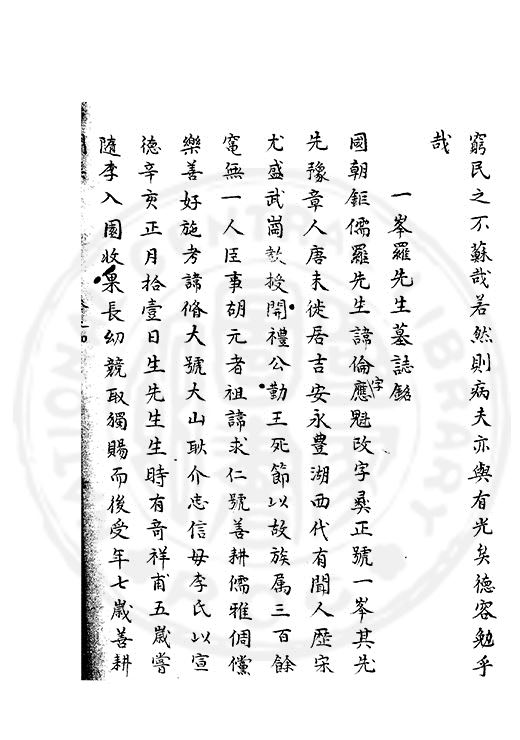 窮民之不蘇哉若然則病夫亦與有光矣德容勉乎
哉
一峯羅先生墓誌銘
國朝鉅儒羅先生諱倫字應魁改字彞正號一峯其先
先豫章人唐末徙居吉安永豐湖西代有聞人歷宋
尤盛武崗教授開禮公勤王死節以故族属三百餘
無一人臣事胡元者祖諱求仁號善耕儒雅倜儻
樂善好施考諱脩大號大山耿介忠信母李氏以宣
德辛亥正月拾壹日生先生生時有竒祥甫五歲嘗
隨李入園收果長幼競取獨賜而後受年七歲善耕
NATIONAL CENTRAL LIBRARY